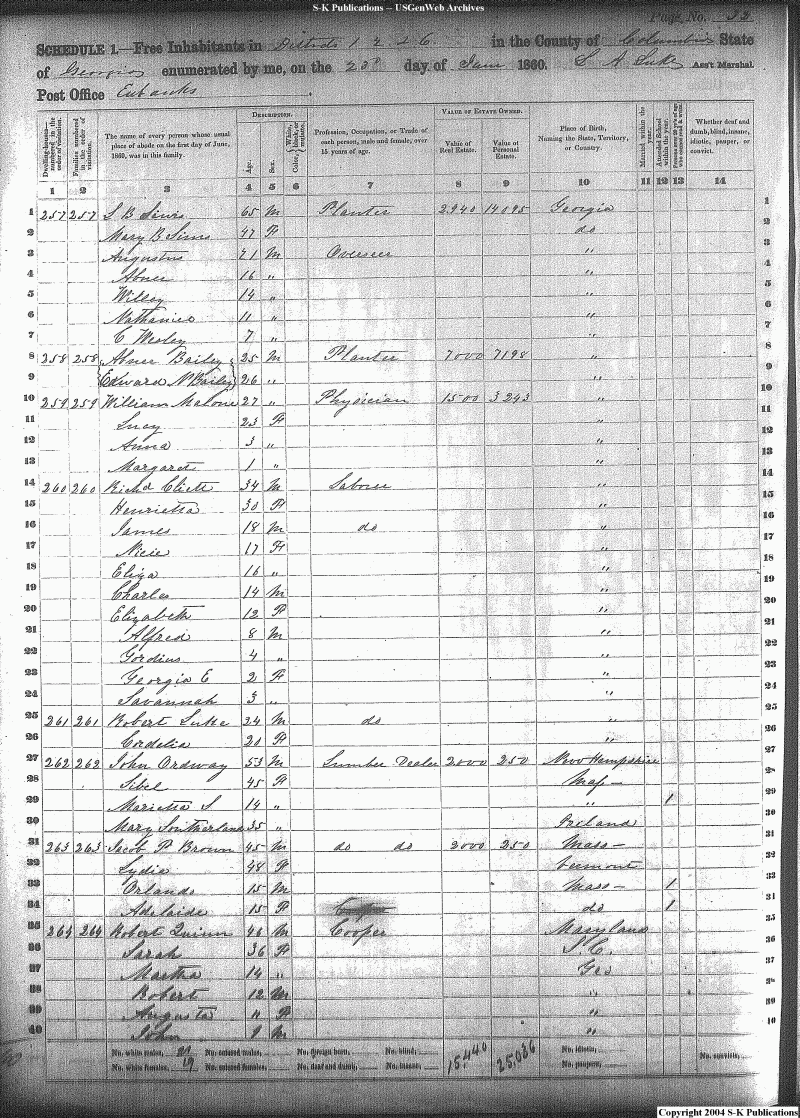 S-K Publications – USGenWeb Archives
Page No. 33
SCHEDULE 1.—Free Inhabitants in Districts 1 2 & 6 in the County of Columbia State
of Georgia enumerated by me, on the 20th day of June 1860. S A Luke Ass't Marshal.
Post Office Eubanks
Dwelling-houses—numbered in the order of visitation. Families numbered in the order of visitation. The name of every person whose usual place of abode on the first day of June, 1860, was in this family. DESCRIPTION. Age. Sex. Color, White, black, or mulatto. Profession, Occupation, or Trade of each person, male and female, over 15 years of age. VALUE OF ESTATE OWNED. Value of Real Estate. Value of Personal Estate. Place of Birth, Naming the State, Territory, or Country. Married within the year. Attended School within the year. Whether deaf and dumb, blind, insane, idiotic, pauper, or convict.
1 2 3 4 5 6 7 8 9 10 11 12 13 14
1 257 257 S B Sims 65 M Planter 2940 14095 Georgia 1
2 Mary B Sims 47 F do 2
3 Augustus 21 M Overseer " 3
4 Abner 16 " " 4
5 Willey 14 " " 5
6 Nathaniel 11 " " 6
7 C Wesley 7 " " 7
8 258 258 Abner Bailey 25 M Planter 7000 7198 " 8
9 Edward N Bailey 26 " " 9
10 259 259 William Malone 27 " Physician 1500 3243 " 10
11 Lucy 23 F " 11
12 Anna 3 " " 12
13 Margaret 1 " " 13
14 260 260 Richd Cliett 34 M Laborer " 14
15 Henrietta 30 F " 15
16 James 18 M do " 16
17 Nicie 17 F " 17
18 Eliza 16 " " 18
19 Charles 14 M " 19
20 Elizabeth 12 F " 20
21 Alfred 8 M " 21
22 Gordius 4 " " 22
23 Georgia E 2 F " 23
24 Savannah 3 " " 24
25 261 261 Robert Luke 24 M do " 25
26 Cordelia 20 F " 26
27 262 262 John Ordway 53 M Lumber Dealer 2000 250 New Hampshire 27
28 Sibel 45 F Mass— 28
29 Marietta S 14 " " 1 29
30 Mary Southerland 35 " Ireland 30
31 263 263 Jacob P Brown 45 M do do 2000 250 Mass— 31
32 Lydia 48 F Vermont 32
33 Orlando 15 M Mass— 1 33
34 Adelaide 15 F do 1 34
35 264 264 Robert Quinn 46 M Cooper Maryland 35
36 Sarah 36 F S.C. 36
37 Martha 14 " Geo 37
38 Robert 12 M " 38
39 Augusta 11 F " 39
40 John 9 M " 40
No. white males, 21 No. colored males, No. foreign born, No. blind, 15,440 25,036 No. idiotic,
No. white females, 19 No. colored females, No. deaf and dumb, No. insane, No. paupers, No. convicts,
Copyright 2004 S-K Publications